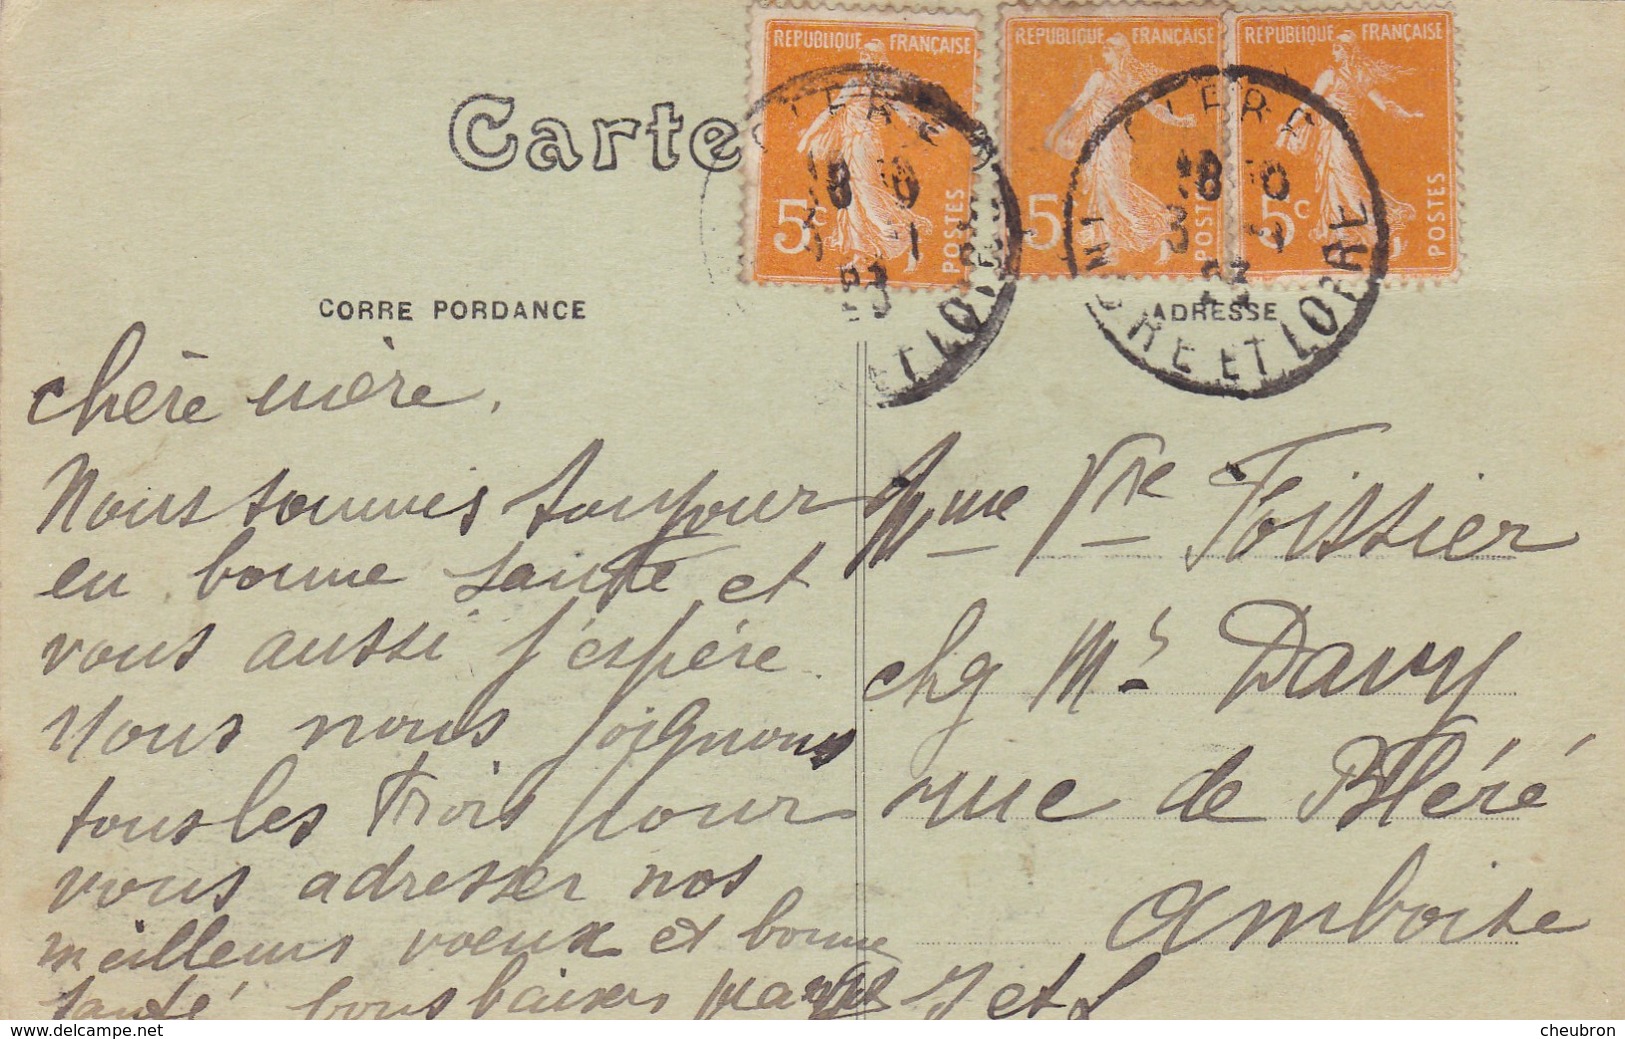 REPUBLIQUE FRANÇAISE
5c POSTES
REPUBLIQUE FRANÇAISE
5 POSTES
REPUBLIQUE FRANÇAISE
5c POSTES
Carte
18
ET LOIRE
18
3 -1
23
ET LOIRE
CORRE PORDANCE
ADRESSE
chère mère,
Nous sommes toujour
en bonne santé et
vous aussi j'espère
Nous nous joignons
tous les trois pour
vous adresser nos
meilleurs voeux et bonne
santé bons baisers
J et L
Mme Vve Foissier
chg Mr Davy
rue de Bléré
Amboise
delcampe.net
cheubron